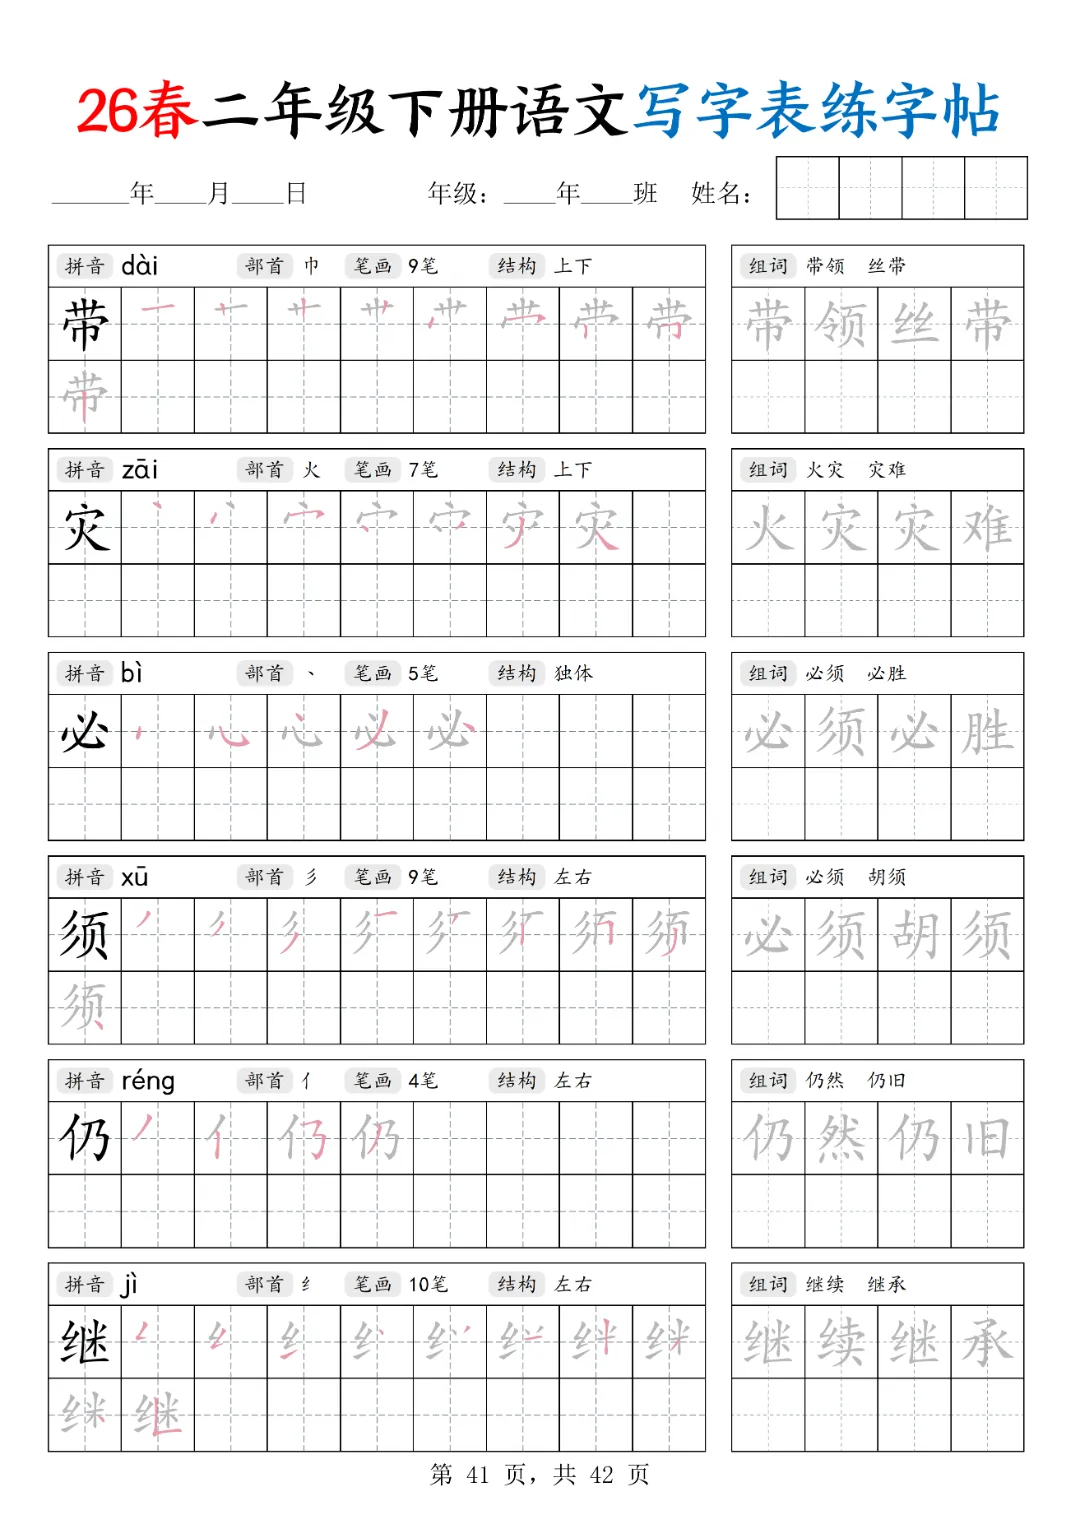 26春二年级下册语文写字表练字帖
______年____月____日 年级：____年____班 姓名：
拼音 dài 部首 巾 笔画 9笔 结构 上下 组词 带领 丝带
带 带领丝带
带
拼音 zāi 部首 火 笔画 7笔 结构 上下 组词 火灾 灾难
灾 灾 火灾灾难
拼音 bì 部首 丶 笔画 5笔 结构 独体 组词 必须 必胜
必 必 必须必胜
拼音 xū 部首 彡 笔画 9笔 结构 左右 组词 必须 胡须
须 必须胡须
须
拼音 réng 部首 亻 笔画 4笔 结构 左右 组词 仍然 仍旧
仍 仍 仍然仍旧
拼音 jì 部首 纟 笔画 10笔 结构 左右 组词 继续 继承
继 继续继承
继
第 41 页，共 42 页